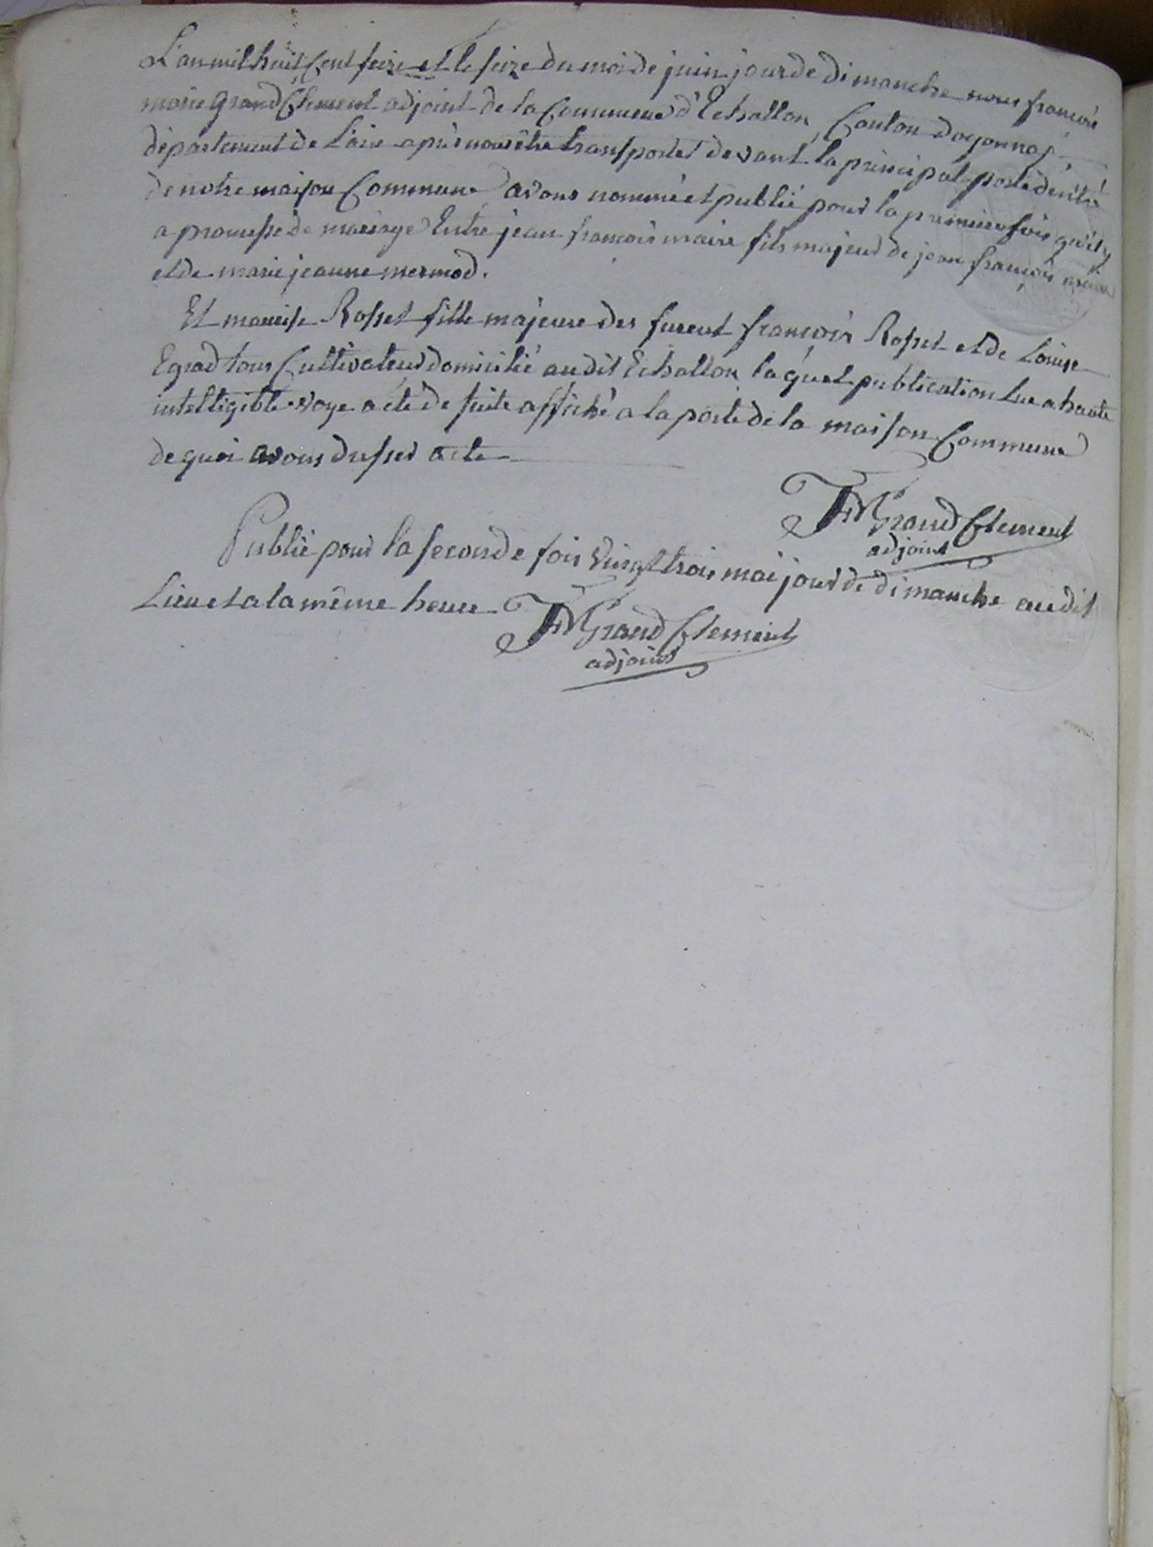 L'an mil huit Cent seize et le seize du moi de juin jour de dimanche nous françois
marie Grand Clement adjoint de la Commune d'Echallon Canton doyonnas
département de Lain après nous être transportés devant la principale porte d'entré
de notre maison Commune avons nommé et publié pour la premiere fois qu'il y
a promesse de mariage Entre jean françois maire fils majeur de jean françois maire
et de marie jeanne mermod.
Et Rosset fille majeure des furent françois Rosset et de Louise
Egrad tous Cultivateur domicilié au dit Echallon laquel publication lue a haute
intelligible voye a été de suite affiché a la porte de la maison Commune
de quoi avons dressés acte
FM Grand Clement
adjoint
Publié pour la seconde fois vingt trois mai jour de dimanche au dit
Lieu et a la même heure
FM Grand Clement
adjoint